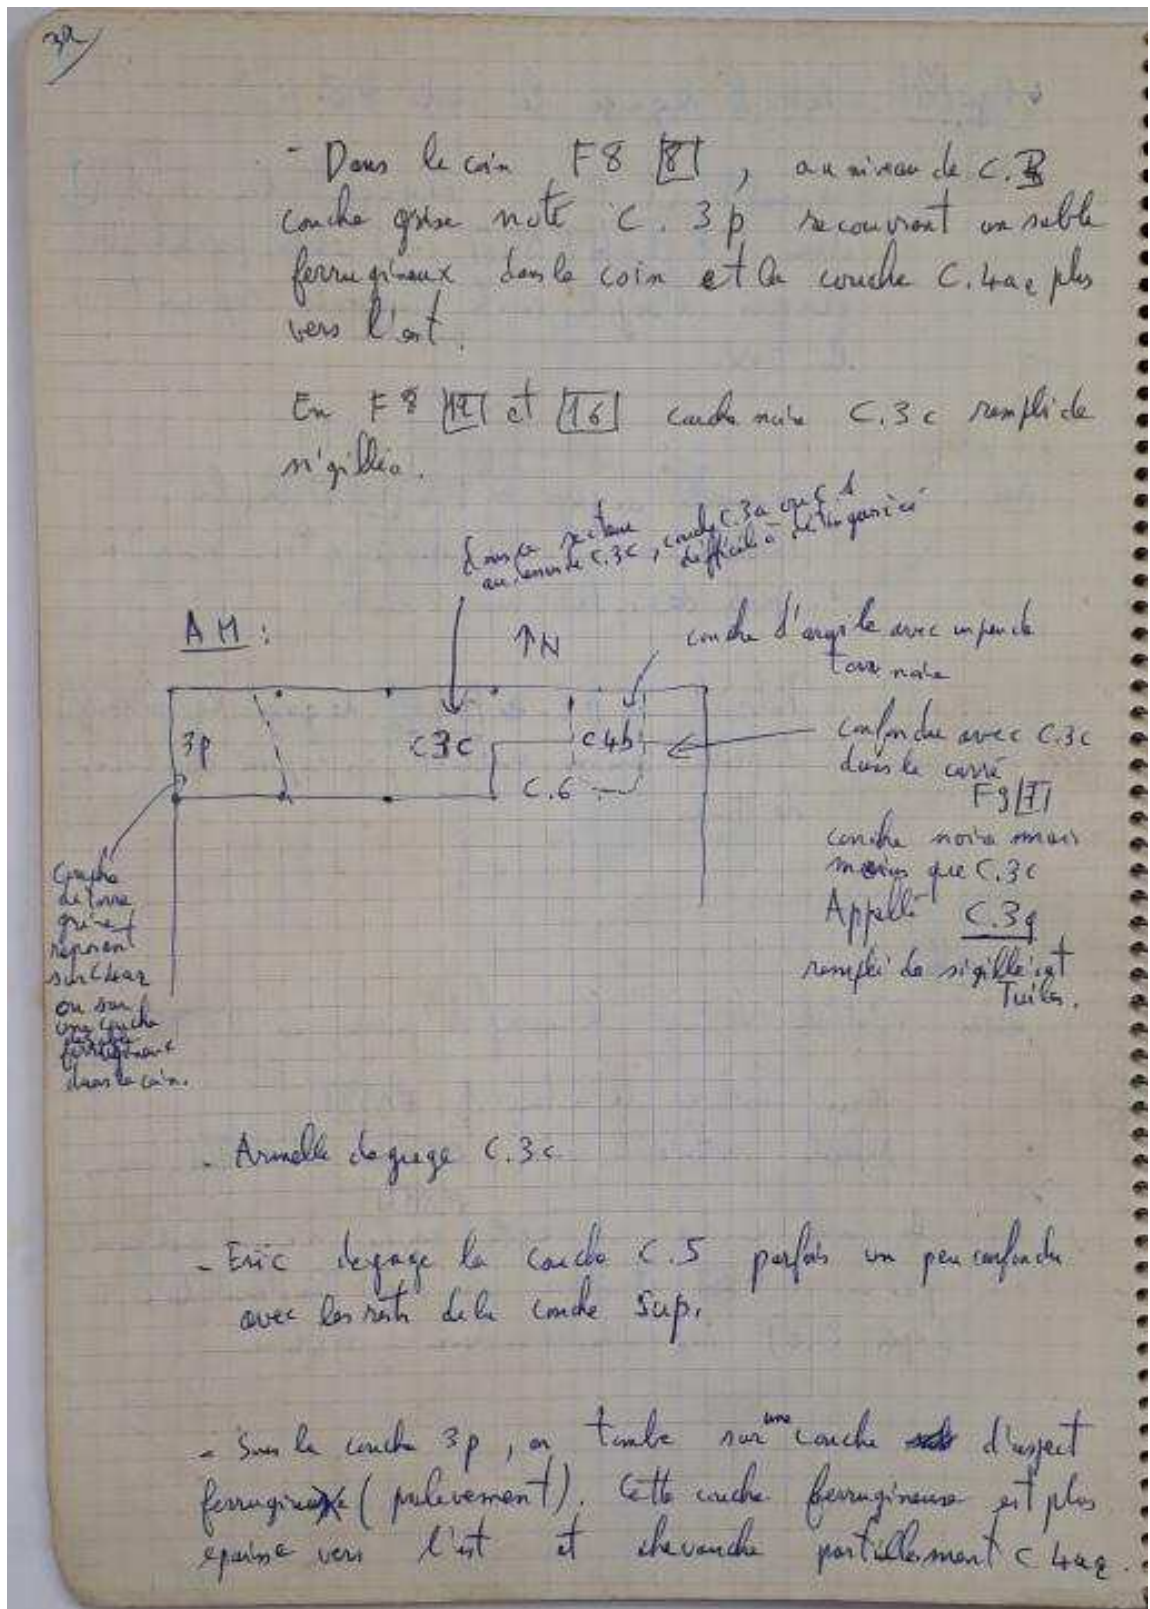 32
- Dans le coin F8 [8], au niveau de C.
couche grise noté C. 3p recouvrant un sable
ferrugineux dans le coin et la couche C.4a2 plus
vers l'est.
En F8 [12] et [16] couche noire C.3c rempli de
sigillée.
dans ce secteur couche C.3a ou C.1
au dessus de C.3c, difficile à
AM :
↑N
couche d'argile avec un peu de
terre noire
3p
C3c
C4b
C.6
confondue avec C.3c
dans le carré
F9
couche noire mais
moins que C.3c
Appellé C.3q
rempli de sigillée et
Tuiles.
Couche
de terre
grise
reposant
sur C4a2
ou sur
une couche
de sable
ferrugineux
dans le coin.
- Armelle dégage C.3c
- Eric dégage la couche C.5 parfois un peu confondu
avec les rests de la couche Sup.
- Sous la couche 3p, on tombe sur une couche d'aspect
ferrugineux (prélevement). Cette couche ferrugineuse est plus
epaisse vers l'est et chevauche partiellement C 4a2.